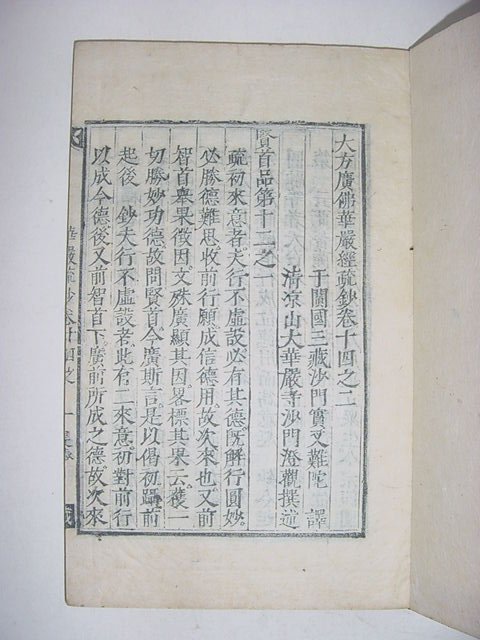 大方廣佛華嚴經疏鈔卷十四之二
于闐國三藏沙門實叉難陀 譯
清凉山大華嚴寺沙門澄觀撰述
賢首品第十二之一
疏初來意者夫行不虛設必有其德旣解行圓妙
必勝德難思收前行願成信德用故次來也又前
智首舉果徵因文殊廣顯其因畧標其果云獲一
切勝妙功德故問賢首令廣斯言是以偈初躡前
起後 鈔夫行不虛設者此有二來意初對前行
以成令德後又前智首下廣前所成之德故次來
華嚴疏鈔卷十四之二 一